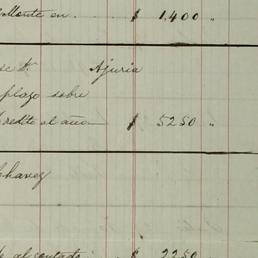 Monte en $ 1,400 "
se D. Ajuria
plazo sobre
credito al año $ 5250 "
Chavez
al contado $ 2250